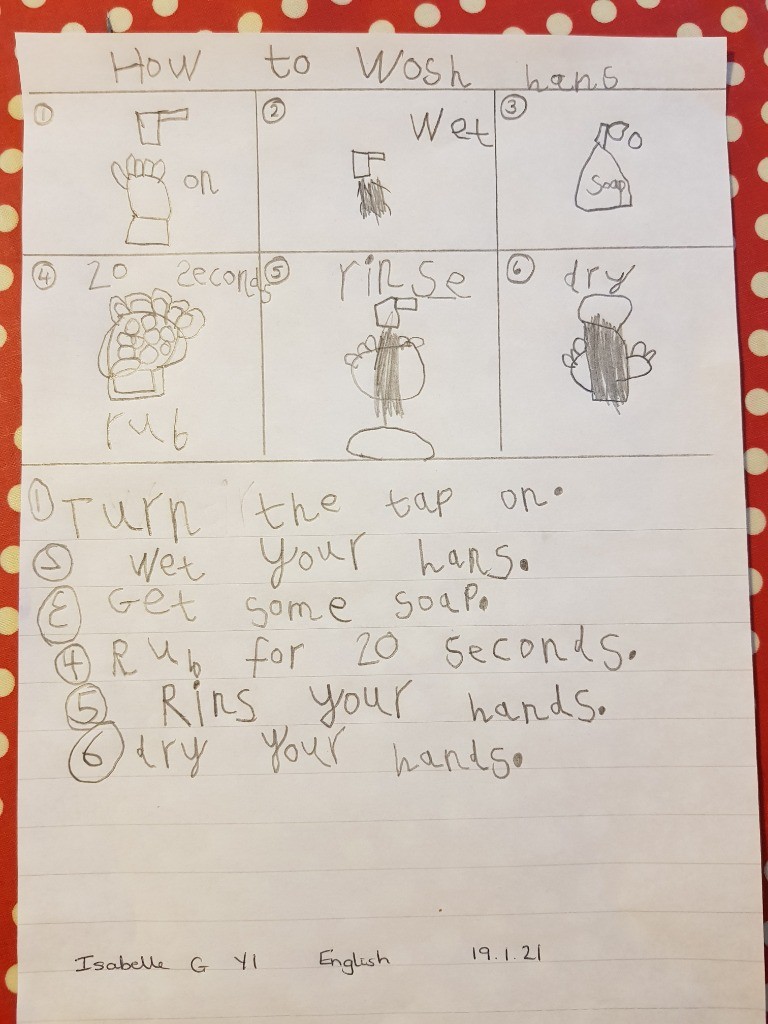 How to Wosh hans
① on
② Wet
③ Soap
④ 20 seconds
rub
⑤ rinse
⑥ dry
① Turn the tap on.
② Wet your hans.
③ Get some soap.
④ Rub for 20 seconds.
⑤ Rins your hands.
⑥ dry your hands.
Isabelle G Y1 English 19.1.21